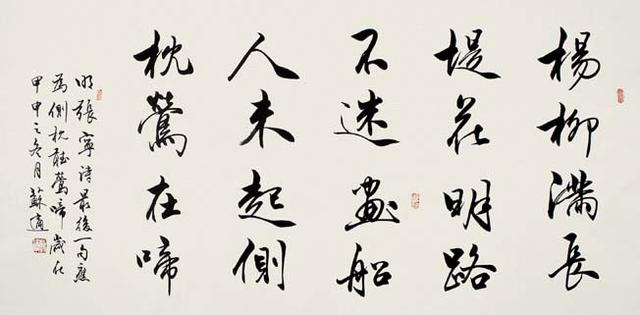 楊柳滿長
堤花明路
不迷畫船
人未起側
枕鶯在啼
明張寧詩最後一句應
為側枕聽鶯啼歲在
甲申之冬月蘇適